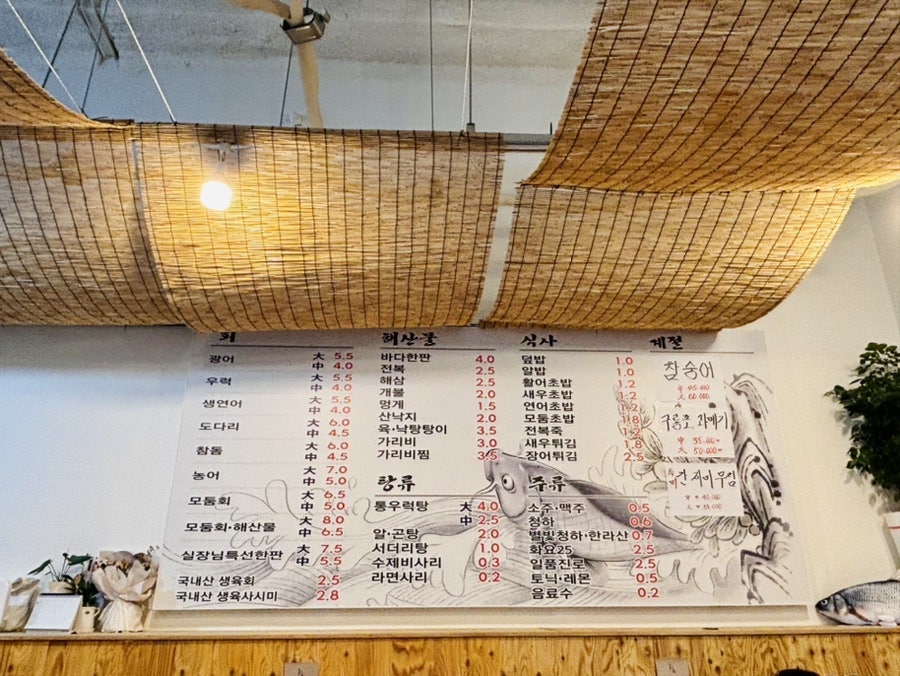 회
광어 大 5.5
中 4.0
우럭 大 5.5
中 4.0
생연어 大 5.5
中 4.0
도다리 大 6.0
中 4.5
참돔 大 6.0
中 5.0
농어 大 7.0
中 5.0
모둠회 大 6.5
中 5.0
모둠회·해산물 大 8.0
中 6.5
실장님특선한판 大 7.5
中 5.5
국내산 생육회 2.5
국내산 생육사시미 2.8
해산물
바다한판 4.0
전복 2.5
해삼 2.5
개불 2.0
멍게 1.5
산낙지 2.0
육·낙탕탕이 3.5
가리비 3.0
가리비찜 3.5
탕류
통우럭탕 大 4.0
中 2.5
알·곤탕 2.0
서더리탕 1.0
수제비사리 0.3
라면사리 0.2
식사
덮밥 1.0
알밥 1.0
활어초밥 1.2
새우초밥 1.2
연어초밥 1.2
모둠초밥 1.8
전복죽 1.2
새우튀김 1.8
장어튀김 2.5
주류
소주·맥주 0.5
청하 0.6
별빛청하·한라산 0.7
화요25 2.5
일품진로 2.5
토닉·레몬 0.5
음료수 0.2
계절
참숭어
中 45.000
大 60.000
구룡포 과메기
中 35.000
大 50.000
간재미무침
中 40.000